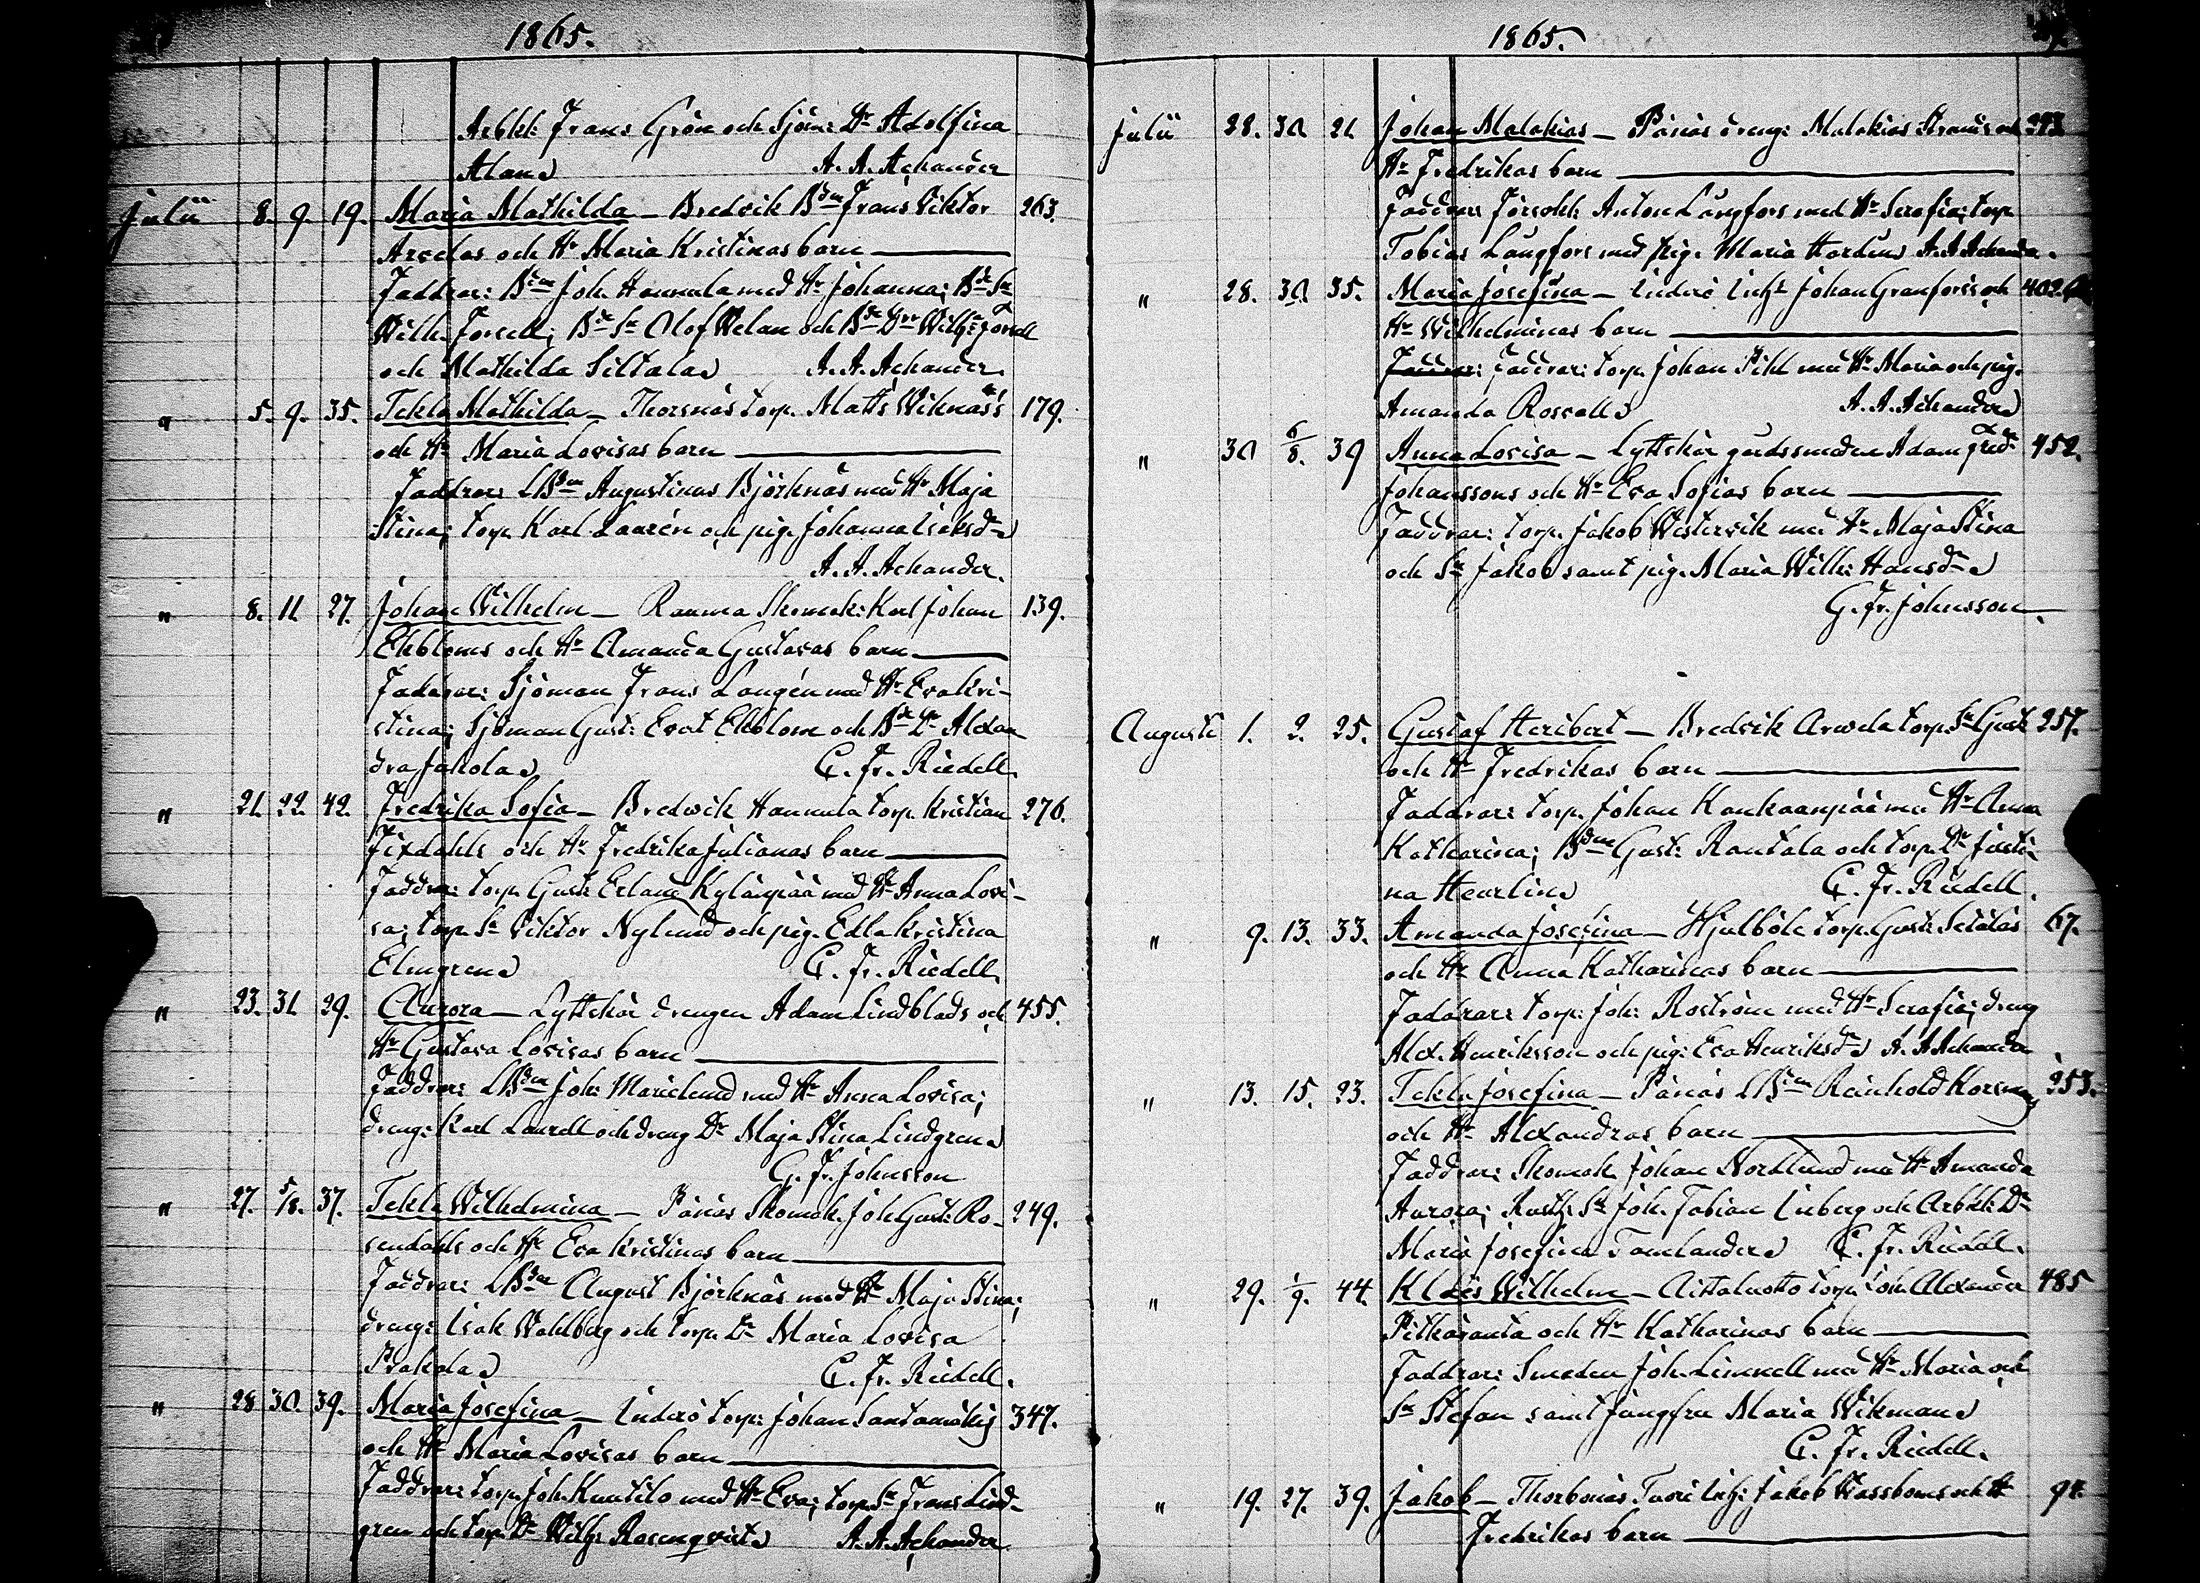 1865.
Arbkl: Frans Grön och Sjöm: Dr Adolfina
Alan A. A. Achander
Julii 8. 9. 19. Maria Mathilda – Bredvik Bdn Frans Viktor 263.
Arvelas och Hr Maria Kristinas barn
Faddrar: Bdn Joh. Hannula med Hr Johanna; Bde Sn
Wilh. Forsell; Bde Sn Olof Welan och Bde Dr Wilh:a Forsell
och Mathilda Siltala A. A. Achander.
" 5. 9. 35. Tekla Mathilda – Thorsnäs torp. Matts Wiknäs's 179.
och Hr Maria Lovisas barn
Faddrar: LBdn Augustinus Björknäs med Hr Maja
Stina; torp. Karl Laurén och pig. Johanna Isaksdr
A. A. Achander.
" 8. 11. 27. Johan Wilhelm – Rauma Skomak: Karl Johan 139.
Ekbloms och Hr Amanda Gustavas barn
Faddrar: Sjöman Frans Langén med Hr Eva Kri-
stina; Sjöman Gust: Evert Ekblom och Bde Dr Alexan
dra Jakola C. Fr. Riedell.
" 21. 22. 42. Fredrika Sofia – Bredwik Hannula torp. Kristian 276.
Fixdahls och Hr Fredrika Julianas barn
Faddrar: torp. Gust: Erland Kylänpää med Hr Anna Lovi-
sa; torp. Sn Viktor Nylund och pig. Edla Kristina
Elmgren C. Fr. Riedell.
" 23. 31. 29. Aurora – Lyttskär drengen Adam Lindblads och 455.
Hr Gustava Lovisas barn
Faddrar: LBdn Joh: Marielund med Hr Anna Lovisa;
dreng: Karl Laurell och dreng Dr Maja Stina Lindgren
G. Fr. Johnsson
" 27. 5/8. 37. Tekla Wilhelmina – Pänäs Skomak. Joh Gust: Ro- 249.
sendahls och Hr Eva Kristinas barn
Faddrar: LBdn August Björknäs med Hr Maja Stina;
dreng: Isak Wahlberg och torp. Dr Maria Lovisa
Prakola C. Fr. Riedell.
" 28 30. 39. Maria Josefina – Inderö torp: Johan Santamäkis 347.
och Hr Maria Lovisas barn
Faddrar: torp. Joh. Kuutilo med Hr Eva; torp. Sn Frans Lind-
gren och torp. Dr Wilh: Rosenqvist A. A. Achander
1865.
Julii 28. 30. 21. Johan Malakias – Pänäs dreng: Malakias Strands och 293
Hr Fredrikas barn
Faddrar: Försökl: Anton Långfors med Hr Serafia; torp.
Tobias Långfors med pig. Maria Nordlund A. A. Achander.
" 28. 30. 35. Maria Josefina – Inderö Inh: Johan Granfors's och 402.
Hr Wilhelminas barn
Faddrar: Faddrar: torp. Johan Pihl med Hr Maria och pig.
Amanda Roswall A. A. Achander
" 30 6/8. 39 Anna Lovisa – Lyttskär gårdssmeden Adam Fred: 452.
Johanssons och Hr Eva Sofias barn
Faddrar: torp. Jakob Westervik med Hr Maja Stina
och Sn Jakob samt pig. Maria Wilh: Hansdr
G. Fr. Johnsson
Augusti 1. 2. 25. Gustaf Heribert – Bredvik Arwela torp. Sn Gust: 257.
och Hr Fredrikas barn
Faddrar: torp. Johan Kankaanpää med Hr Anna
Katharina; Bdn Gust: Rantala och torp. Dr Justi-
na Heurlin C. Fr. Riedell.
" 9. 13. 33. Amanda Josefina – Hjulböle torp. Gust: Setäläs 67.
och Hr Anna Katharinas barn
Faddrar: torp. Joh: Roström med Hr Serafia; dreng
Alex. Henriksson och pig: Eva Henriksdr A. A. Achander
" 13. 15. 23. Tekla Josefina – Pänäs LBdn Reinhold Korsmans 253.
och Hr Alexandras barn
Faddrar: Skomak. Johan Nordlund med Hr Amanda
Aurora; Rusth: Sn Joh. Fabian Inberg och Arbkl: Dr
Maria Josefina Tamlander C. Fr. Riedell.
" 29. 1/9. 44. Klaës Wilhelm – Aittaluoto torp. Joh. Alexander 485
Pitkäranta och Hr Katharinas barn
Faddrar: Smeden Joh. Limnell med Hr Maria och
Sn Stefan samt jungfru Maria Wikman
C. Fr. Riedell.
" 19. 27. 39. Jakob – Thorbonäs Tuori Inh: Jakob Wassboms och Hr 94.
Fredrikas barn